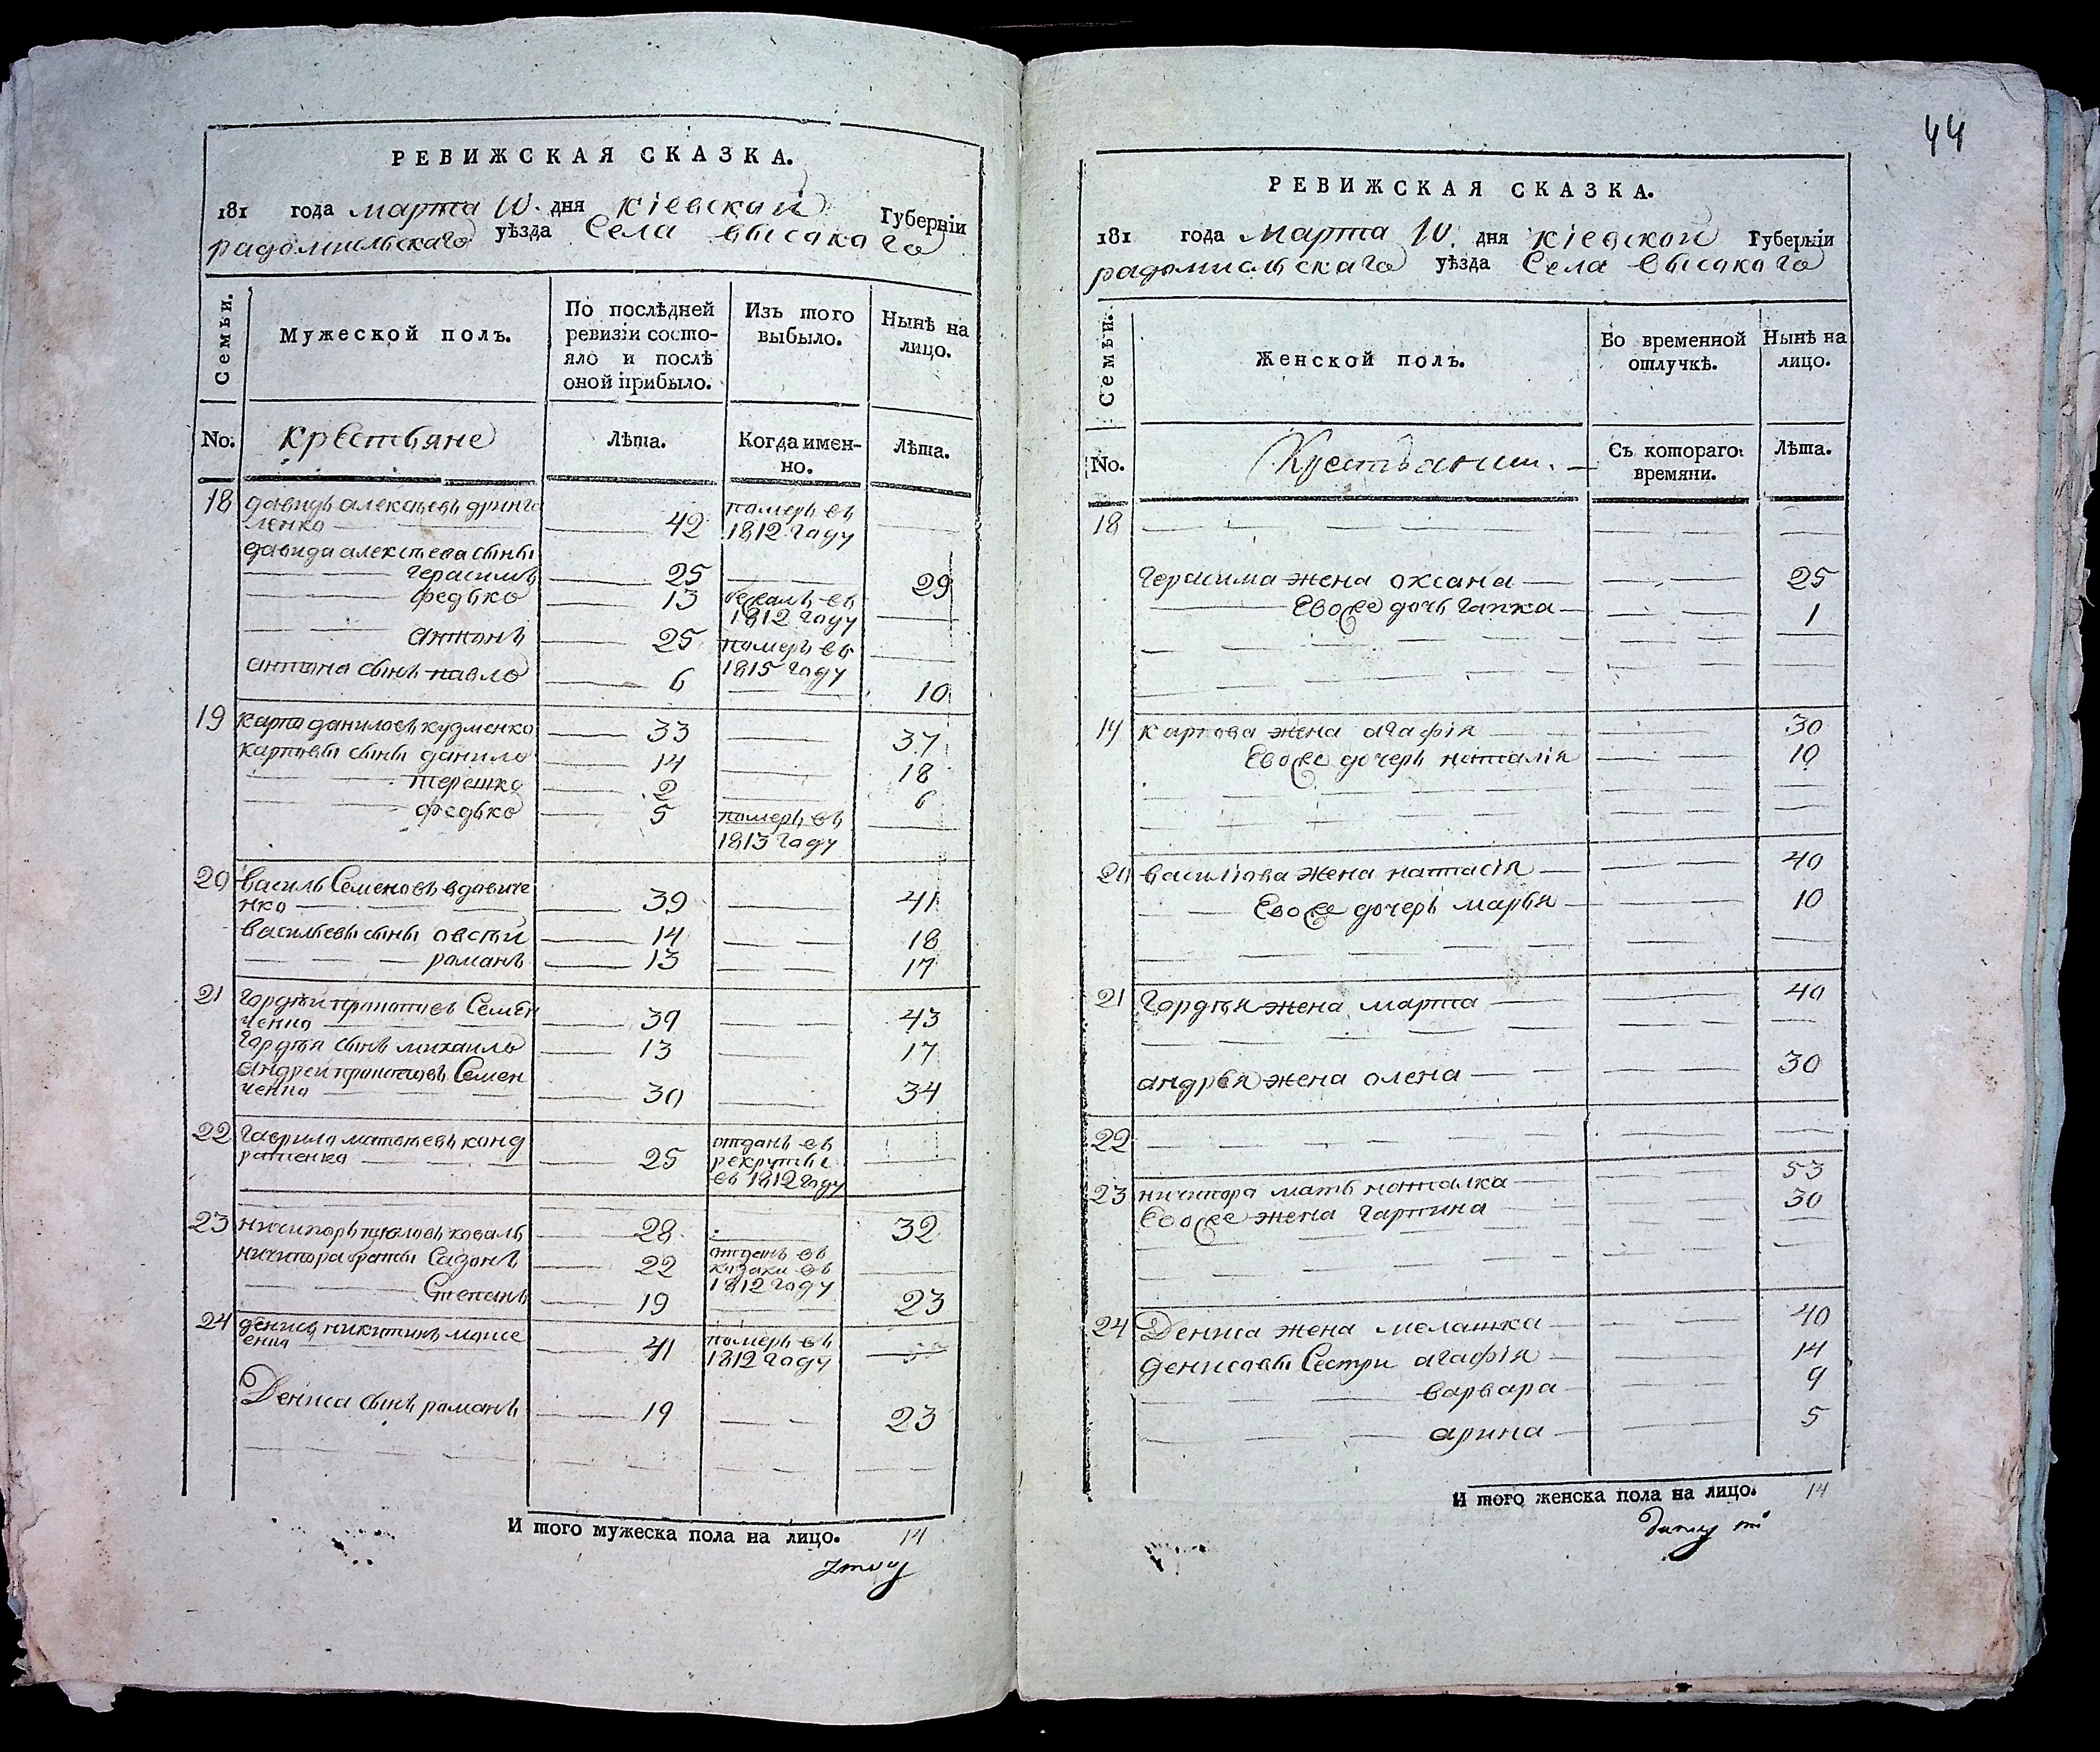 44
РЕВИЖСКАЯ СКАЗКА.
181 года марта 10. дня кіевской Губерніи
радомысльскаго уѣзда Села высокаго
Семьи.
Мужеской полъ.
По послѣдней
ревизіи состо-
яло и послѣ
оной прибыло.
Изъ того
выбыло.
Нынѣ на
лицо.
No. крестьяне Лѣта. Когда имен-
но. Лѣта.
18 давидъ алексѣевъ
ленко 42 померъ въ
1812 году
давида алексѣева сыны
герасимъ 25 29
федько 13 бежалъ въ
1812 году
антонъ 25 померъ въ
1815 году
антона сынъ павло 6 10
19 карпо даниловъ кудменко 33 37
карповы сыны данило 14 18
терешко 2 6
федько 5 померъ въ
1813 году
20 василь Семеновъ вдовиче
нко 39 41
васильевы сыны овсѣй 14 18
романъ 13 17
21 гордѣй Семен
ченко 39 43
гордѣя сынъ михайло 13 17
андрей Семен
ченко 30 34
22 гаврило матвѣевъ конд
ратенко 25 отданъ въ
рекруты
въ 1812 году
23 ничипоръ павловъ коваль 28 32
ничипора браты Сазонъ 22 отданъ въ
козаки въ
1812 году
Степанъ 19 23
24 денисъ никитинъ
41 померъ въ
1812 году
Дениса сынъ романъ 19 23
И того мужеска пола на лицо. 14
РЕВИЖСКАЯ СКАЗКА.
181 года марта 10. дня кіевской Губерніи
радомысльскаго уѣзда Села высокаго
Семьи.
Женской полъ.
Во временной
отлучкѣ.
Нынѣ на
лицо.
No. Крестьянки. Съ котораго
времяни. Лѣта.
18
герасима жена оксана 25
Евоже дочь гапка 1
19 карпова жена агафія 30
Евоже дочерь наталія 10
20 василіова жена настасія 40
Евоже дочерь марья 10
21 Гордѣя жена марта 40
андрѣя жена олена 30
22
23 ничипора мать наталка 53
Евоже жена гарпина 30
24 Дениса жена мелашка 40
денисовы Сестри агафія 14
варвара 9
арина 5
И того женска пола на лицо. 14